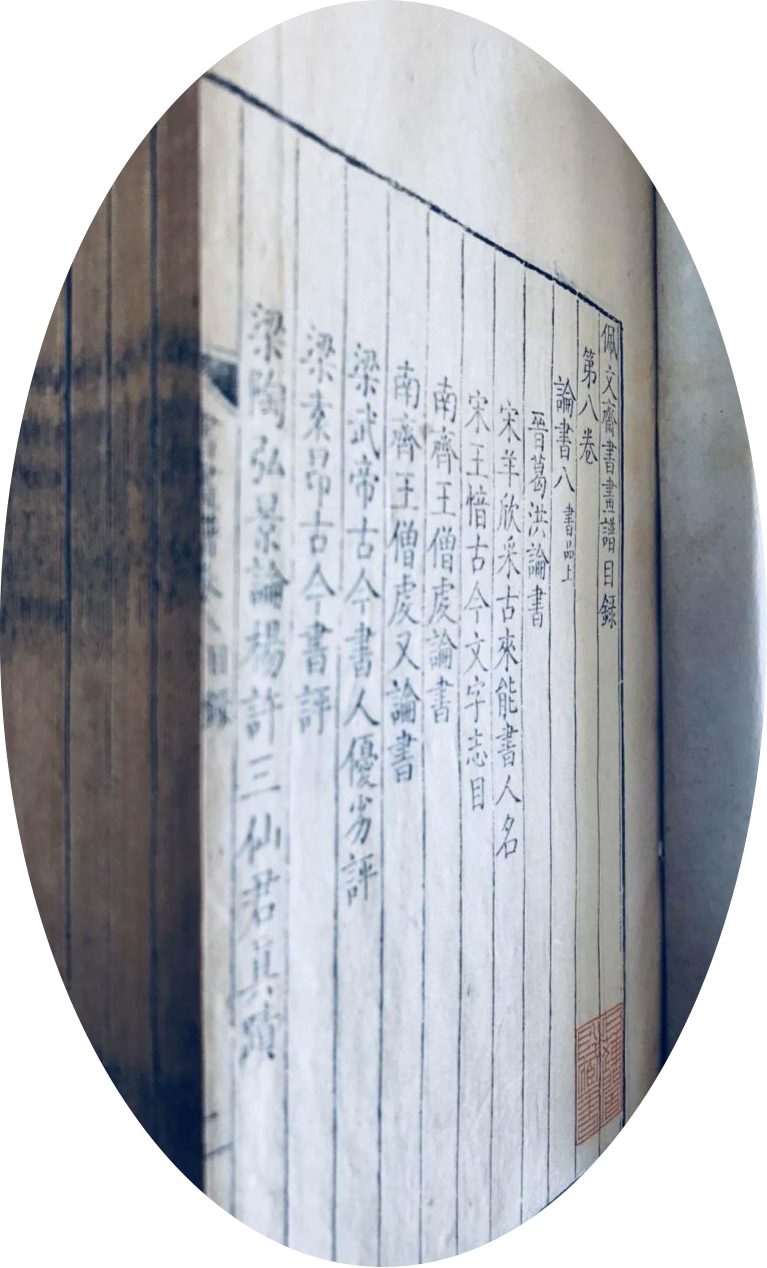 佩文齋書畫譜目録
第八卷
論書八 書品上
晉葛洪論書
宋羊欣采古來能書人名
宋王愔古今文字志目
南齊王僧虔論書
南齊王僧虔又論書
梁武帝古今書人優劣評
梁袁昂古今書評
梁陶弘景論楊許三仙君真蹟